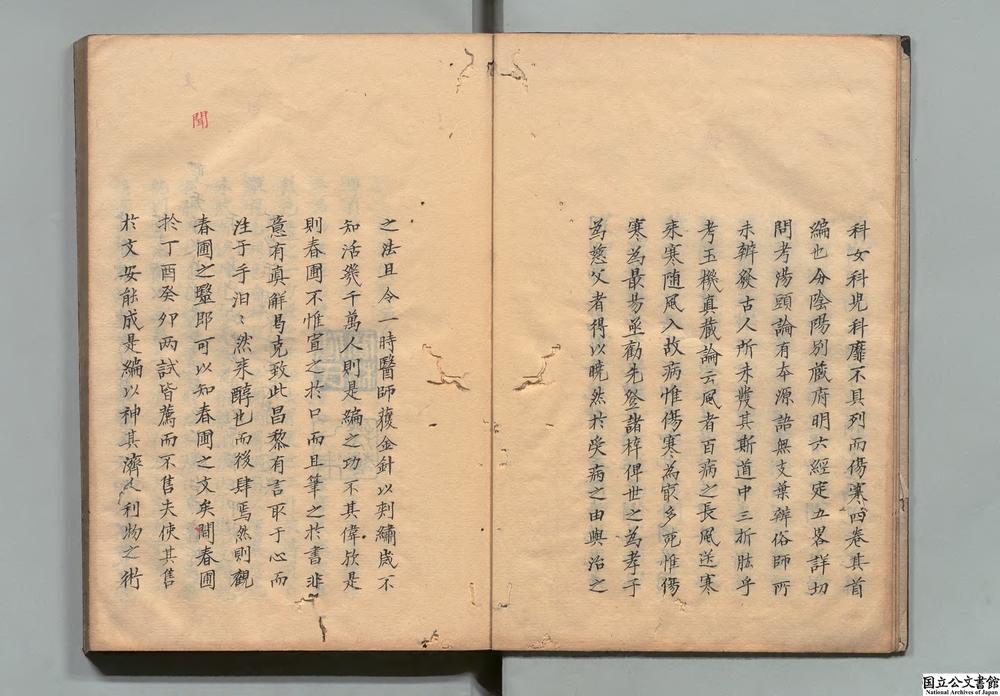 科女科児科靡不具列而傷寒四卷其首
編也分陰陽別藏府明六經定五畧詳切
問考湯頭論有本源語無支葉辨俗師所
未辨發古人所未發其斯道中三折肱乎
考玉機真藏論云風者百病之長風送寒
来寒随風入故病惟傷寒為最多死惟傷
寒為最昜亟勸先登諸梓俾世之為孝子
為慈父者得以曉然於受病之由與治之
之法且令一時醫師獲金針以刺繡歳不
知活幾千萬人則是編之功不其偉歟是
則春圃不惟宣之於口而且筆之於書非
意有真解曷克致此昌黎有言取于心而
注于手汩〻然来醇也而後肆焉然則觀
春圃之醫即可以知春圃之文矣聞春圃
於丁酉癸夘兩試皆薦而不售夫使其售
於文安能成是編以神其濟人利物之術
聞
国立公文書館
National Archives of Japan